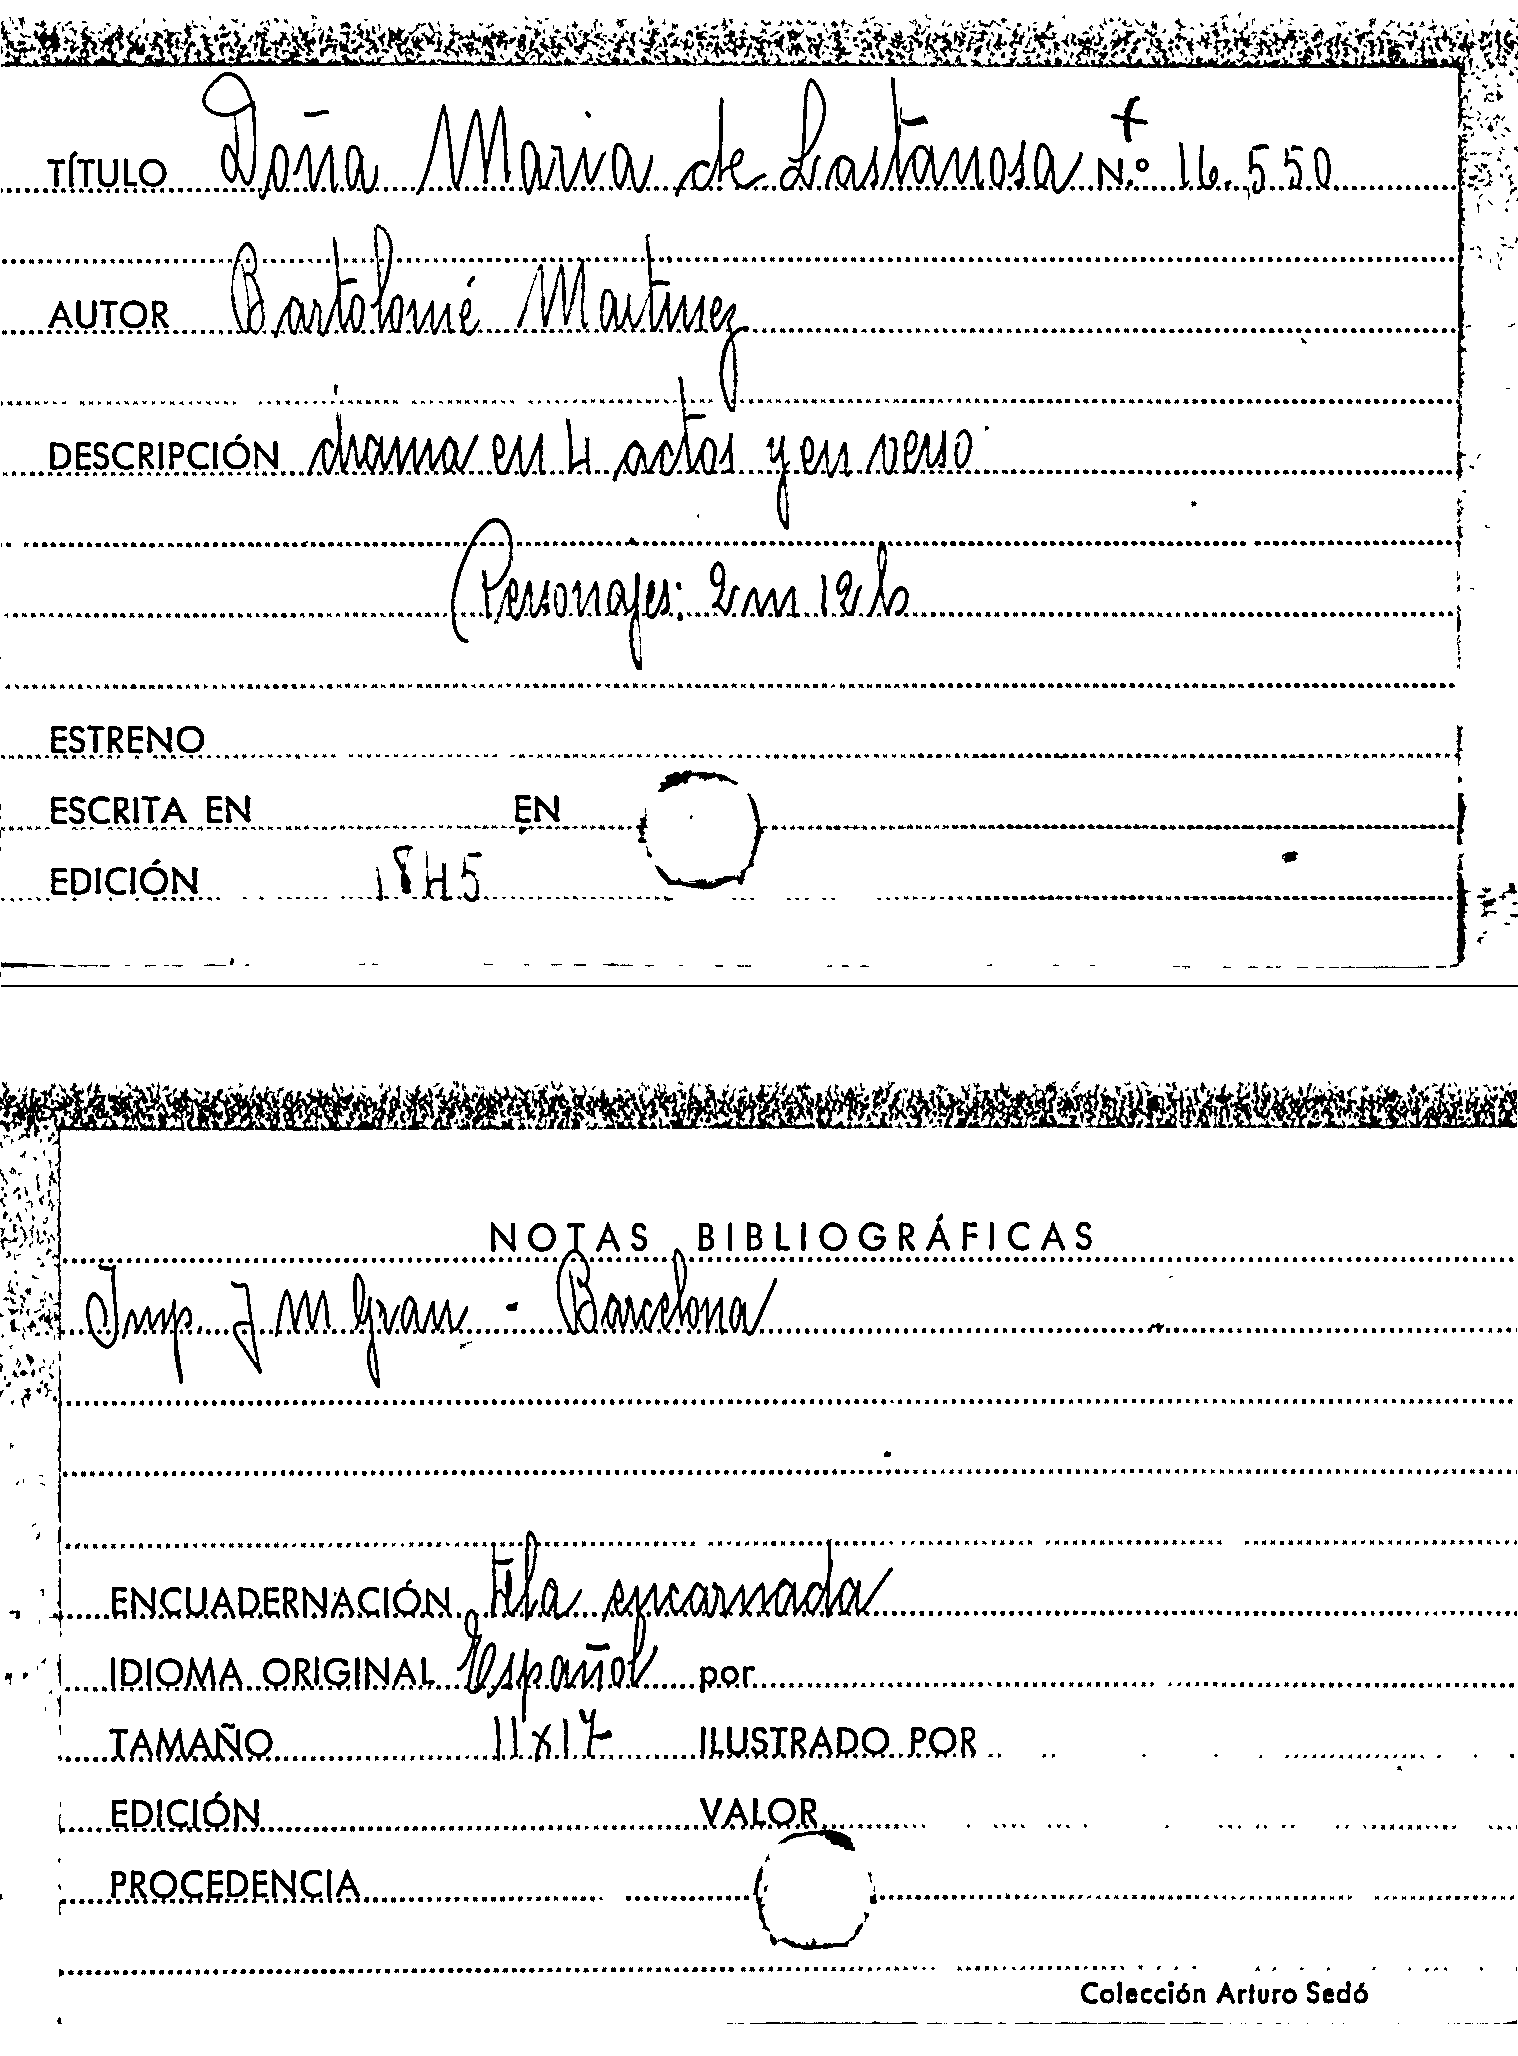 TÍTULO Doña Maria de Lastanosa N.º 16.550
AUTOR Bartolomé Martinez
DESCRIPCIÓN drama en 4 actos y en verso
Personajes: 2m 12h
ESTRENO
ESCRITA EN EN
EDICIÓN 1845
NOTAS BIBLIOGRÁFICAS
Imp. J M Grau - Barcelona
ENCUADERNACIÓN tela encarnada
IDIOMA ORIGINAL Español por
TAMAÑO 11x17 ILUSTRADO POR
EDICIÓN VALOR
PROCEDENCIA
Colección Arturo Sedó